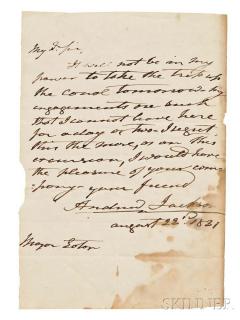 My Dr Sir,
It will not be in my
power to take the trip up
the coast tomorrow my
engagements are such
that I cannot leave here
for a day or two. I regret
this the more, as on this
excursion, I would have
the pleasure of your com
pany - your friend
Andrew Jackson
august 22d. 1821
Major Eaton
SKINNER